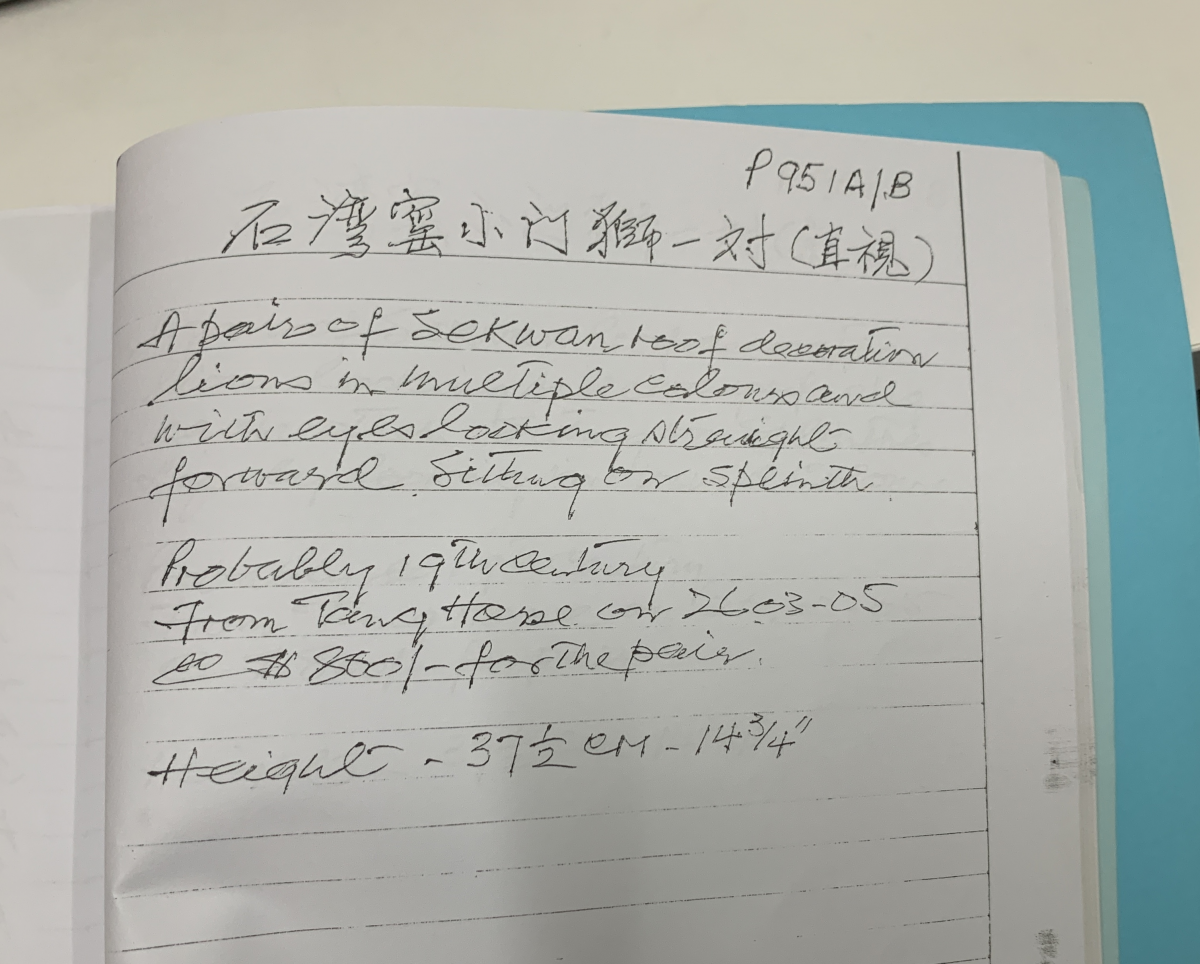 P951A/B
石灣窰小门獅一対(直視)
A pair of Sekwan roof decoration
lions in multiple colours and
with eyes looking straight
forward. Sitting on splinth
Probably 19th century
From Tang Horse on 26-03-05
@ $ 800/- for the pair.
Height - 37 1/2 CM - 14 3/4"